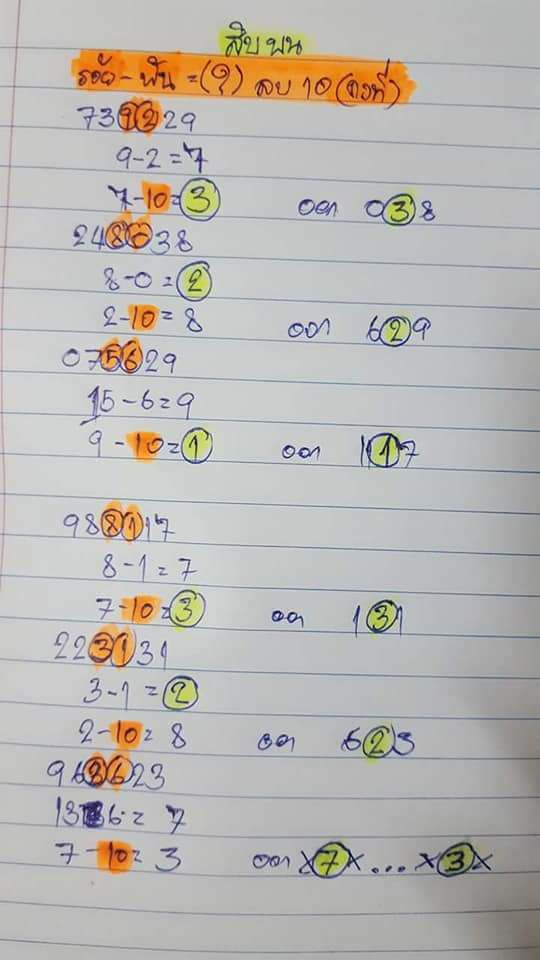 สิบ พน
ร้อย - พัน = (?) ลบ 10 (คงที่)
739229
9-2 = 7
7-10 = 3 ออก 038
248038
8-0 = 2
2-10 = 8 ออก 629
075629
15-6 = 9
9-10 = 1 ออก 117
988117
8-1 = 7
7-10 = 3 ออก 131
223131
3-1 = 2
2-10 = 8 ออก 623
963623
13-6 = 7
7-10 = 3 ออก x7x ... x3x